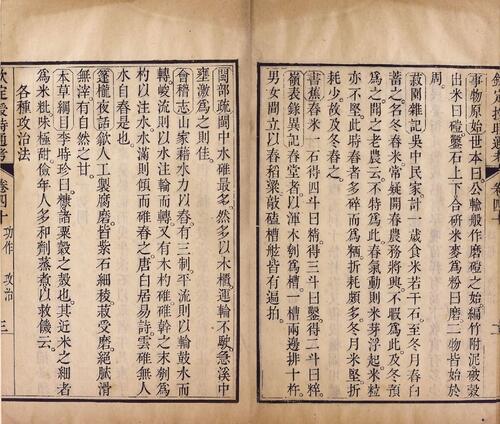 欽定授時通考
事物原始世本曰公輸般作磨磑之始編竹附泥破穀
出米曰磑鑿石上下合硏米麥爲粉曰磨二物皆始於
周
菽園雜記吳中民家計一歲食米若干石至冬月舂臼
蓄之名冬舂米常疑開春農務將興不暇爲此及冬預
爲之問之老農云不特爲此春氣動則米芽浮起米粒
亦不堅此時舂者多碎而爲粞折耗頗多冬月米堅折
耗少故及冬舂之
書蕉舂米一石得四斗曰精得三斗曰鑿得二斗曰粹
嶺表錄異記舂堂者以渾木刳爲槽一槽兩邊排十杵
男女間立以舂稻粱敲磕槽舷皆有遍拍
閩部疏閩中水碓最多然多以木櫃運輪不駛急溪中
壅激爲之則佳
會稽志山家藉水力以舂有三制平流則以輪鼓水而
轉峻流則以水注輪而轉又有木杓碓碓幹之末刳爲
杓以注水水滿則傾而碓舂之唐白居易詩雲碓無人
水自舂是也
篷櫳夜話歙人工製腐磨皆紫石細稜菽受磨絕膩滑
無滓有自然之甘
本草綱目李時珍曰糠諸粟穀之殻也其近米之細者
爲米粃味極甜儉年人多和劑蒸煮以救饑云
各種攻治法
欽定授時通考 卷四十 功作 攻治 三